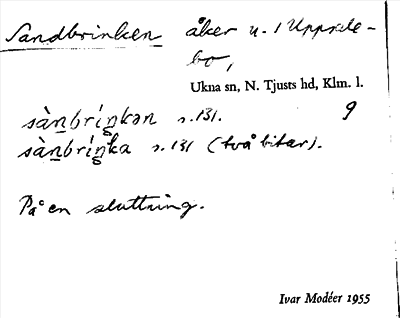 Sandbrinken åker u. 1 Uppsale-
bo,
Ukna sn, N. Tjusts hd, Klm. l.
sànbríŋkən s. 131. 9
sànbríŋka s. 131 (två bitar).
På en sluttning.
Ivar Modéer 1955